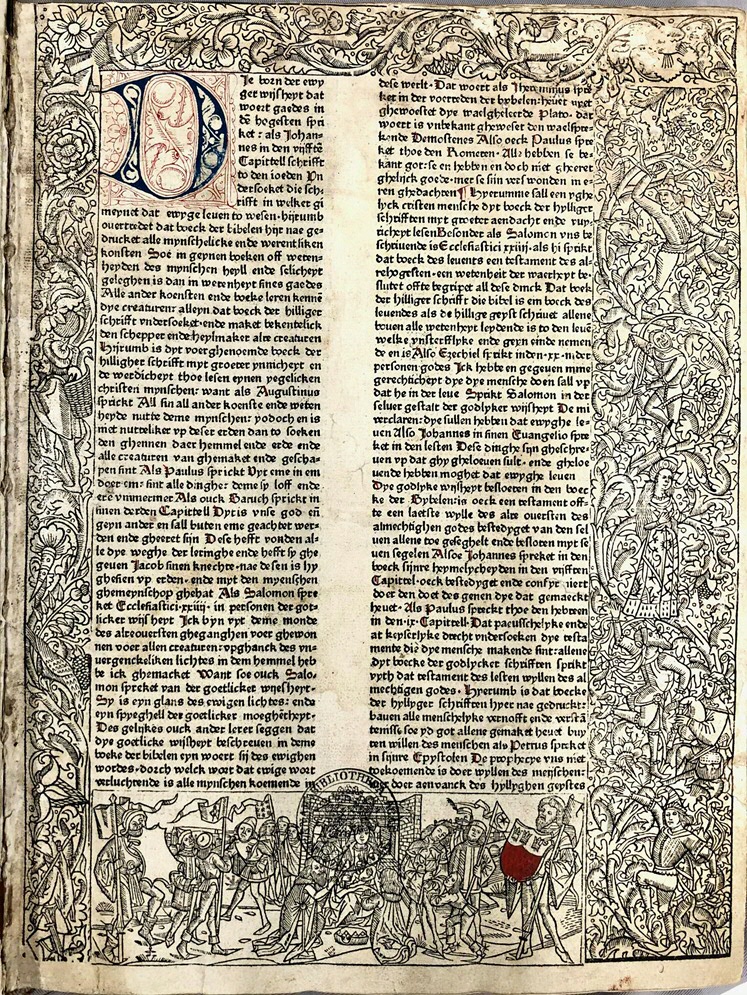 Je born der ewy
ger wijsheyt dat
woert gaedes in
dē hogesten spri
ket : als Johan-
nes in den vijfftē
Capittell schrifft
to den ioeden Vn
dersoeket die sch-
rifft in welket gi
meynet dat ewyge leuen to wesen · hijrumb
ouertredet dat boeck der bibelen hijr nae ge-
drucket alle mynschelicke ende werentliken
konsten Soe in geynen boeken off weten-
heyden des mynschen heyll ende selicheyt
geleghen is dan in wetenheyt sines gaedes
Alle ander koensten ende boeke leren kennē
dye creaturen: alleyn dat boeck der hilliger
schrifft vndersoeket · ende maket bekentelick
den schepper ende heylmaker alre creaturen
Hijrumb is dyt voerghenoemde boeck der
hillighet schrifft myt groeter ynnicheyt en
de werdicheyt thoe lesen eynen yegelicken
christen mynschen: want als Augustinus
sprickt All sin all ander koenste end weten
heyde nutte deme mynschen: yodoch en is
niet nutteliker vp deser erden dan to soeken
den ghennen daer hemmel ende erde ende
alle creaturen van ghemaket ende gescha-
pen sint Als Paulus sprickt Vyt eme in em
doer em: sint alle dingher deme sy loff ende
ere ymmermer Als ouck Baruch sprickt in
sinen derden Capittell Dyt is vnse god eñ
geyn ander en sall buten eme geachtet wer-
den ende gheeret sijn Dese hefft vonden al-
le dye weghe der leringhe ende hefft sy ghe
geuen Jacob sinen knechte · nae desen is hy
ghesien vp erden · ende myt den mynschen
ghemeynschop ghehat Als Salomon spre
ket Ecclesiastici · xxiiij · in personen der got-
licker wijsheyt Jck byn vyt deme monde
des alreouersten gheganghen voer ghewon
nen voer allen creaturen: vpghanck des vn-
uergenckeliken lichtes in dem hemmel heb
be ick ghemacket Want soe ouck Salo-
mon spreket van der goetlicker wijesheyt ·
Sy is eyn glans des ewigen lichtes: ende
eyn spyeghell der goetlicker moegēheyt ·
Des gelijkes ouck ander lerer seggen dat
dye goetlicke wijsheyt beschreuen in deme
boeke der bibelen eyn woert sij des ewighen
wordes · dorch welck wort dat ewige wort
verluchtende is alle mynschen koemende in
dese werlt · Dat woert als Iheronimus spre
ket in der voerreden der bybelen: heuet vyet
ghewoestet dye waelgheleerde Plato · dat
woert is vnbekant ghewoset den waelspre-
kende Demostenes Also oeck Paulus spre
ket thoe den Romeren · Alle hebben se be-
kant got: se en hebben en doch niet gheeret
ghelijck goede · mer se sijn wes wonden in e-
ren ghedachten Hyerumme sall een yghe
lyck cristen mensche dyt boeck der hylliger
schrifften myt groeter aendacht ende yup
richeyt lesen Besonder als Salomon vns be
schriuende is Ecclesiastici xxiiij · als hi sprikt
dat boeck des leuents een testament des al-
rehogesten · een wetenheit der waerheyt be-
slutet offte begripet all dese dinck Dat boek
der hilliger schrifft die bibel is em boeck des
leuendes als de hillige geyst schriuet allene
bouen alle wetenheyt leydende is to den leuē
welke ynsterfflyke ende geyn einde nemen
de en is Also Ezechiel sprikt inden · xx · in der
personen godes Jck hebbe en gegeuen mijne
gerechticheyt dye dye mensche doen sall vp
dat he in der leue Sprikt Salomon in der
seluer gestalt der godlyker wijsheyt De mi
verclaren: dye sullen hebben dat ewyghe le-
uen Also Johannes in sinen Euangelio spre
ket in den lesten Dese dinghe sijn gheschre-
uen vp dat ghy gheloeuen sult · ende gheloe
uende hebben moghet dat ewyghe leuen
Dye godlyke wijsheyt besloeten in den boec
ke der Bybelen: is oeck een testament off-
te een laetste wylle des alre ouersten des
almechtighen godes bestedyget van den sel
uen allene toe geseghelt ende besloten myt se
uen segelen Alsoe Johannes spreket in den
boeck sijnre heymelycheyden in den vijfften
Capittel · oeck bestedyget ende confyrmiert
doer den doet des genen dye dat gemaeckt
heuet · Als Paulus spreckt thoe den hebreen
in den · ix · Capittell · Dat pacuesschelyke ende
at keyserlyke drecht vndersoeken dye testa
mente die dye mensche makende sint: allene
dyt boecke der godlycker schrifften sprikt
vyth dat testament des lesten wyllen des al
mechtigen godes · Hyerumb is dat boecke
der hyllyger schrifften hyer nae gedruckt:
bauen alle menschelyke vernofft ende verstā
tenisse soe yd got allene gemaket heuet buy
ten willen des menschen als Petrus spricket
in sijnre Epystolen De prophecye vns niet
toekoemende is doer wyllen des menschen:
doer aenvanck des hyllyghen geystes
BIBLIOTHE